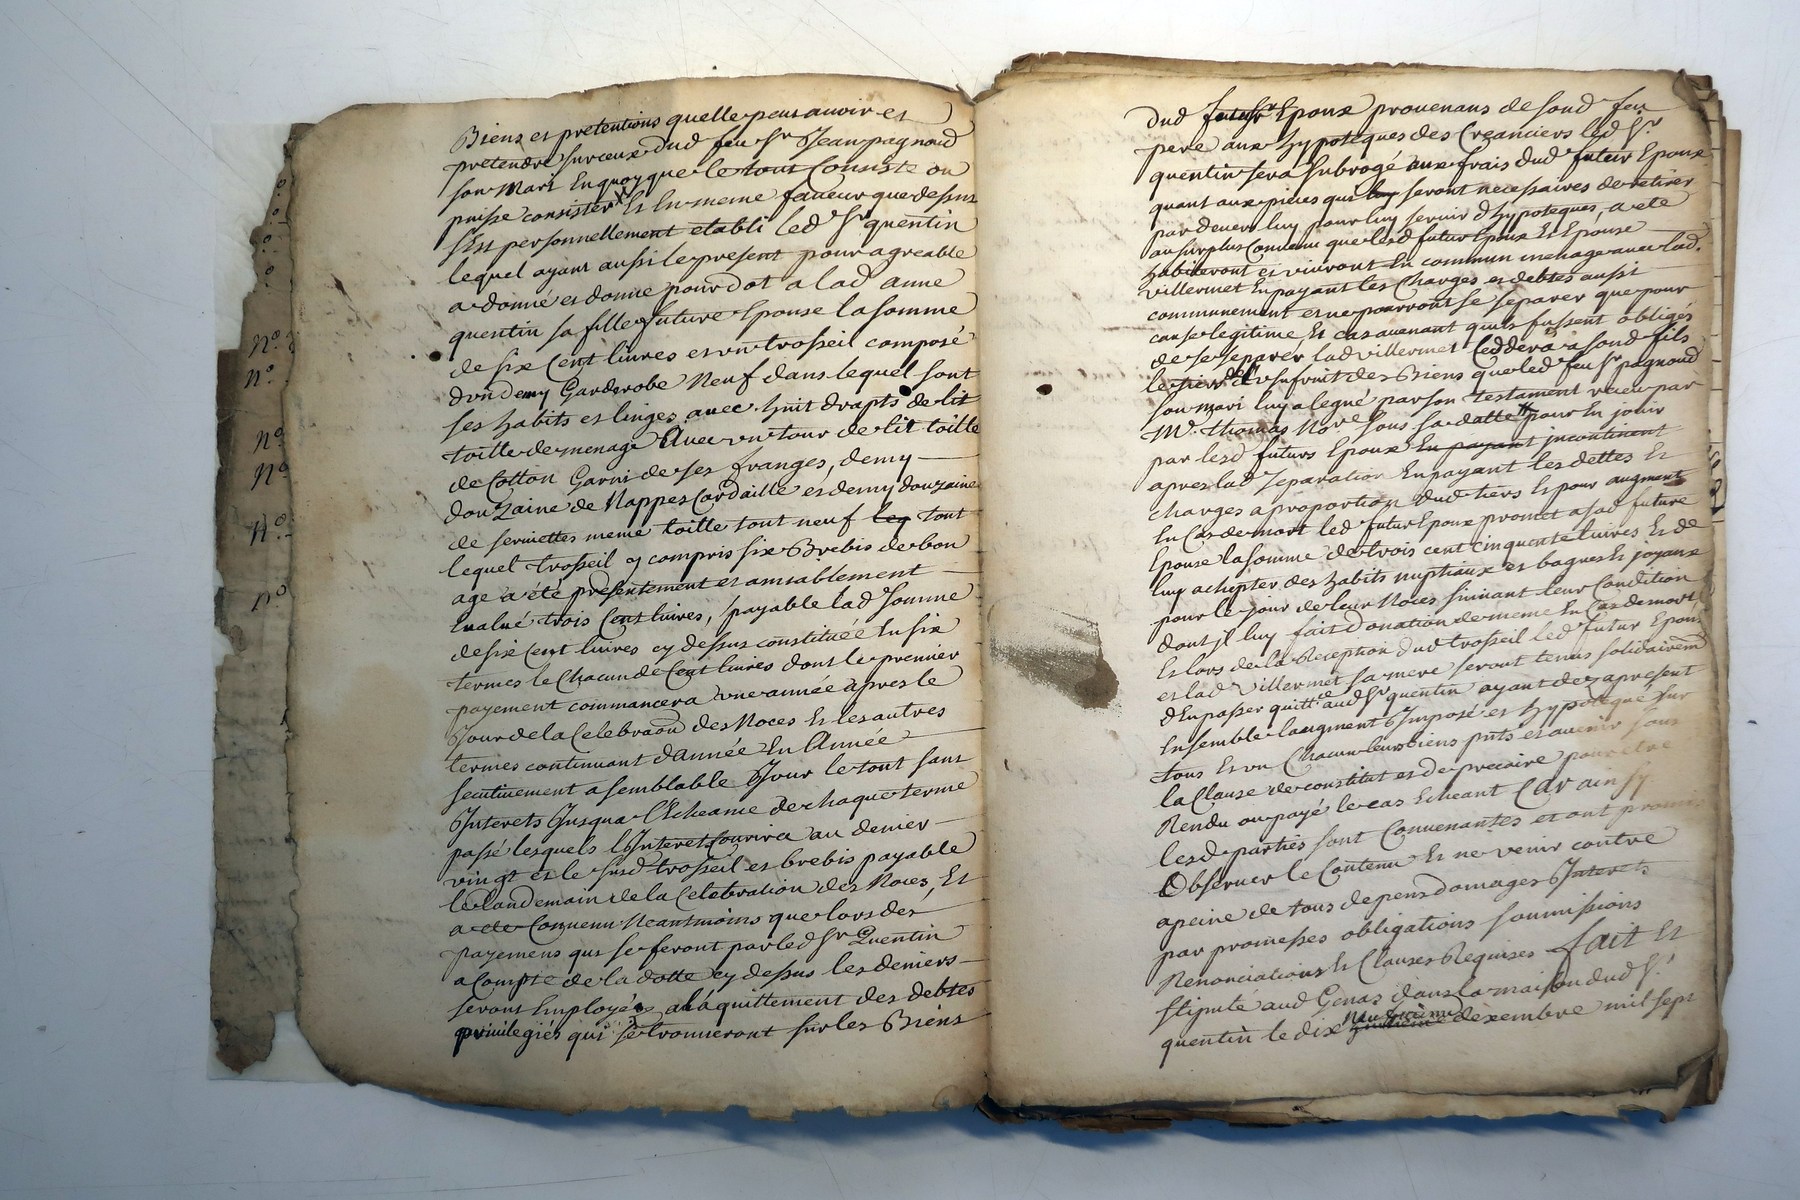 N.o
N.o
N.o
N.o
N.o
N.o
Biens et pretentions quelle peut auoir et
pretendre sur ceux dud feu Sr Jean pagnoud
son mari En quoy que le tout Consiste ou
puisse consister Et En meme faueur que dessus
s'est personnellement etabli led Sr quentin
lequel ayant aussi le present pour agreable
a donné et donne pour dot a lad anne
quentin sa fille future Epouse la somme
de six Cent liures et un trosseil composé
d'un demy Garderobe Neuf dans lequel sont
ses habits et linges auec huit drapts de lit
toille de menage Auec un tour de lit toille
de Cotton Garni de ses franges, demy
douzaine de Nappes Cordaille et demy douzaine
de seruiettes meme toille tout neuf tout
lequel trosseil y compris six Brebis de bon
age a été presentement et amiablement
Evalué trois Cent liures, payable lad somme
de six Cent liures cy dessus constituée En six
termes le Chacun de Cent liures dont le premier
payement commancera une année apres le
Jour de la Celebraõn des Noces Et les autres
termes continuant d'année En Année
seutiuement a semblable Jour le tout sans
Interets Jusqua l'Echeance de chaque terme
passé lesquels l'Interet Courira au denier
vingt et le susd trosseil et brebis payable
le landemain de la Celebration des Noces, Et
a ete Conuenu Neantmoins que lors des
payemens qui se feront par led Sr Quentin
a Compte de la dotte cy dessus les deniers
seront Employés a l'aquittement des debtes
priuilegiés qui se trouueront sur les Biens
dud futur Epoux prouenans de sond feu
pere aux hypoteques des Creanciers led Sr
quentin sera subrogé aux frais dud futur Epoux
quant aux pieces qui luy seront necessaires de retirer
par deuers luy pour luy seruir d'hypoteques, a ete
au surplus Conuenu que lesd futur Epoux Et Epouse
habiteront et viuront En commun menage auec lad.
villermet En payant les Charges et debtes aussi
communement et ne pourront se separer que pour
cause legitime Et cas auenant quils fussent obligés
de se separer lad villermet Ceddera a sond fils
le tiers de l'usufruit des Biens que led feu Sr pagnoud
son mari luy a legué par son testament receu par
Me. thomas No.re sous sa datte pour En jouir
par lesd futurs Epoux En payant incontinant
apres lad separation En payant les dettes Et
charges a proportion dud tiers Et pour augment
En Cas de mort led futur Epoux promet a sad future
Epouse la somme de trois cent cinquante liures Et de
luy achepter des habits nuptiaux et bagues Et joyaux
pour le jour de leur Noces suiuant leur Condition
dont il luy fait Donation de meme En Cas de mort
Et lors de la Reception dud trosseil led futur Epoux
et lad villermet sa mere seront tenus solidairem
d'En passer quitt.ce aud Sr quentin ayant dez apresent
Ensemble l'augment Imposé et hypotequé sur
tous Et un Chacun leurs biens pnts et auenir sous
la Clause de constitut et de precaire pour etre
Rendu ou payé le cas Echeant Car ainsy
lesd parties sont Conuenantes et ont promis
Obseruer le Contenu Et ne venir contre
a peine de tous depens domages Interets
par promesses obligations soumissions
Renonciations Et Clauses Requises fait Et
stipulé aud Genas dans la maison dud Sr.
quentin le dix Neuuieme dexembre mil sept